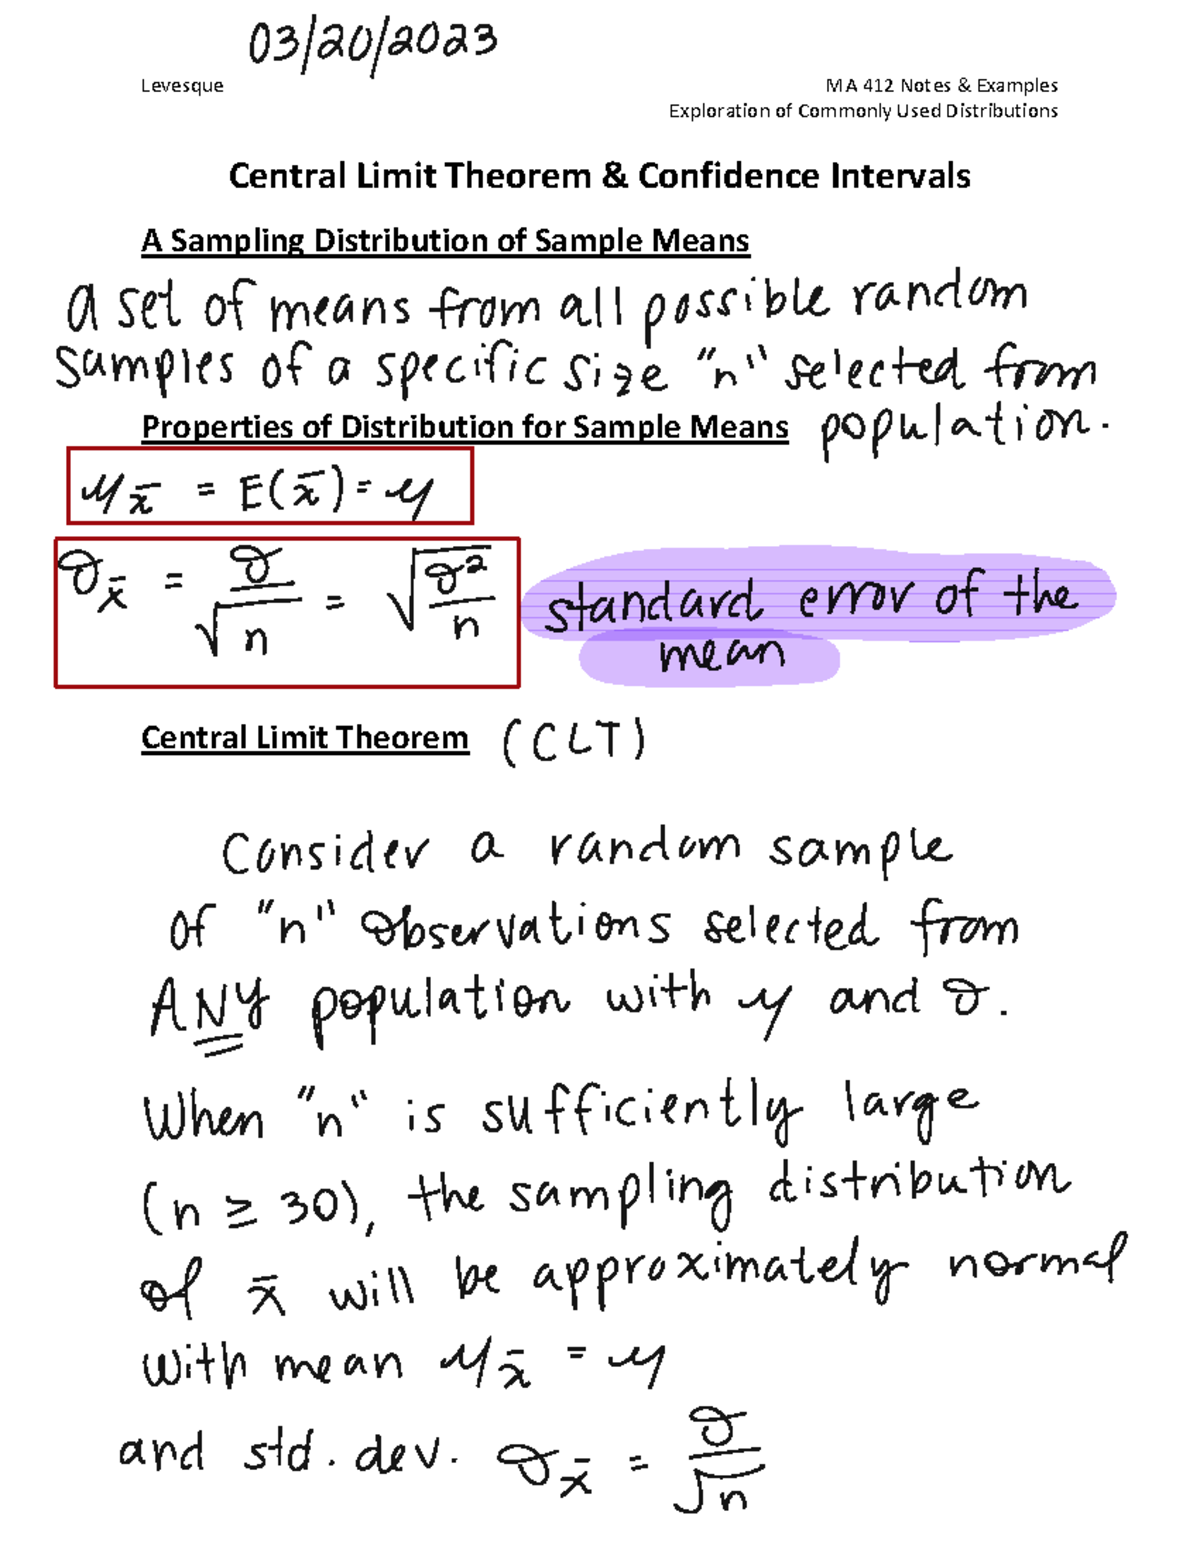 03/20/2023
Levesque
MA 412 Notes & Examples
Exploration of Commonly Used Distributions
Central Limit Theorem & Confidence Intervals
A Sampling Distribution of Sample Means
a set of means from all possible random
samples of a specific size "n" selected from
population.
Properties of Distribution for Sample Means
μx̄ = E(x̄) = μ
σx̄ = σ/√n = √(σ²/n) standard error of the
mean
Central Limit Theorem (CLT)
Consider a random sample
of "n" observations selected from
ANY population with μ and σ.
When "n" is sufficiently large
(n ≥ 30), the sampling distribution
of x̄ will be approximately normal
with mean μx̄ = μ
and std. dev. σx̄ = σ/√n